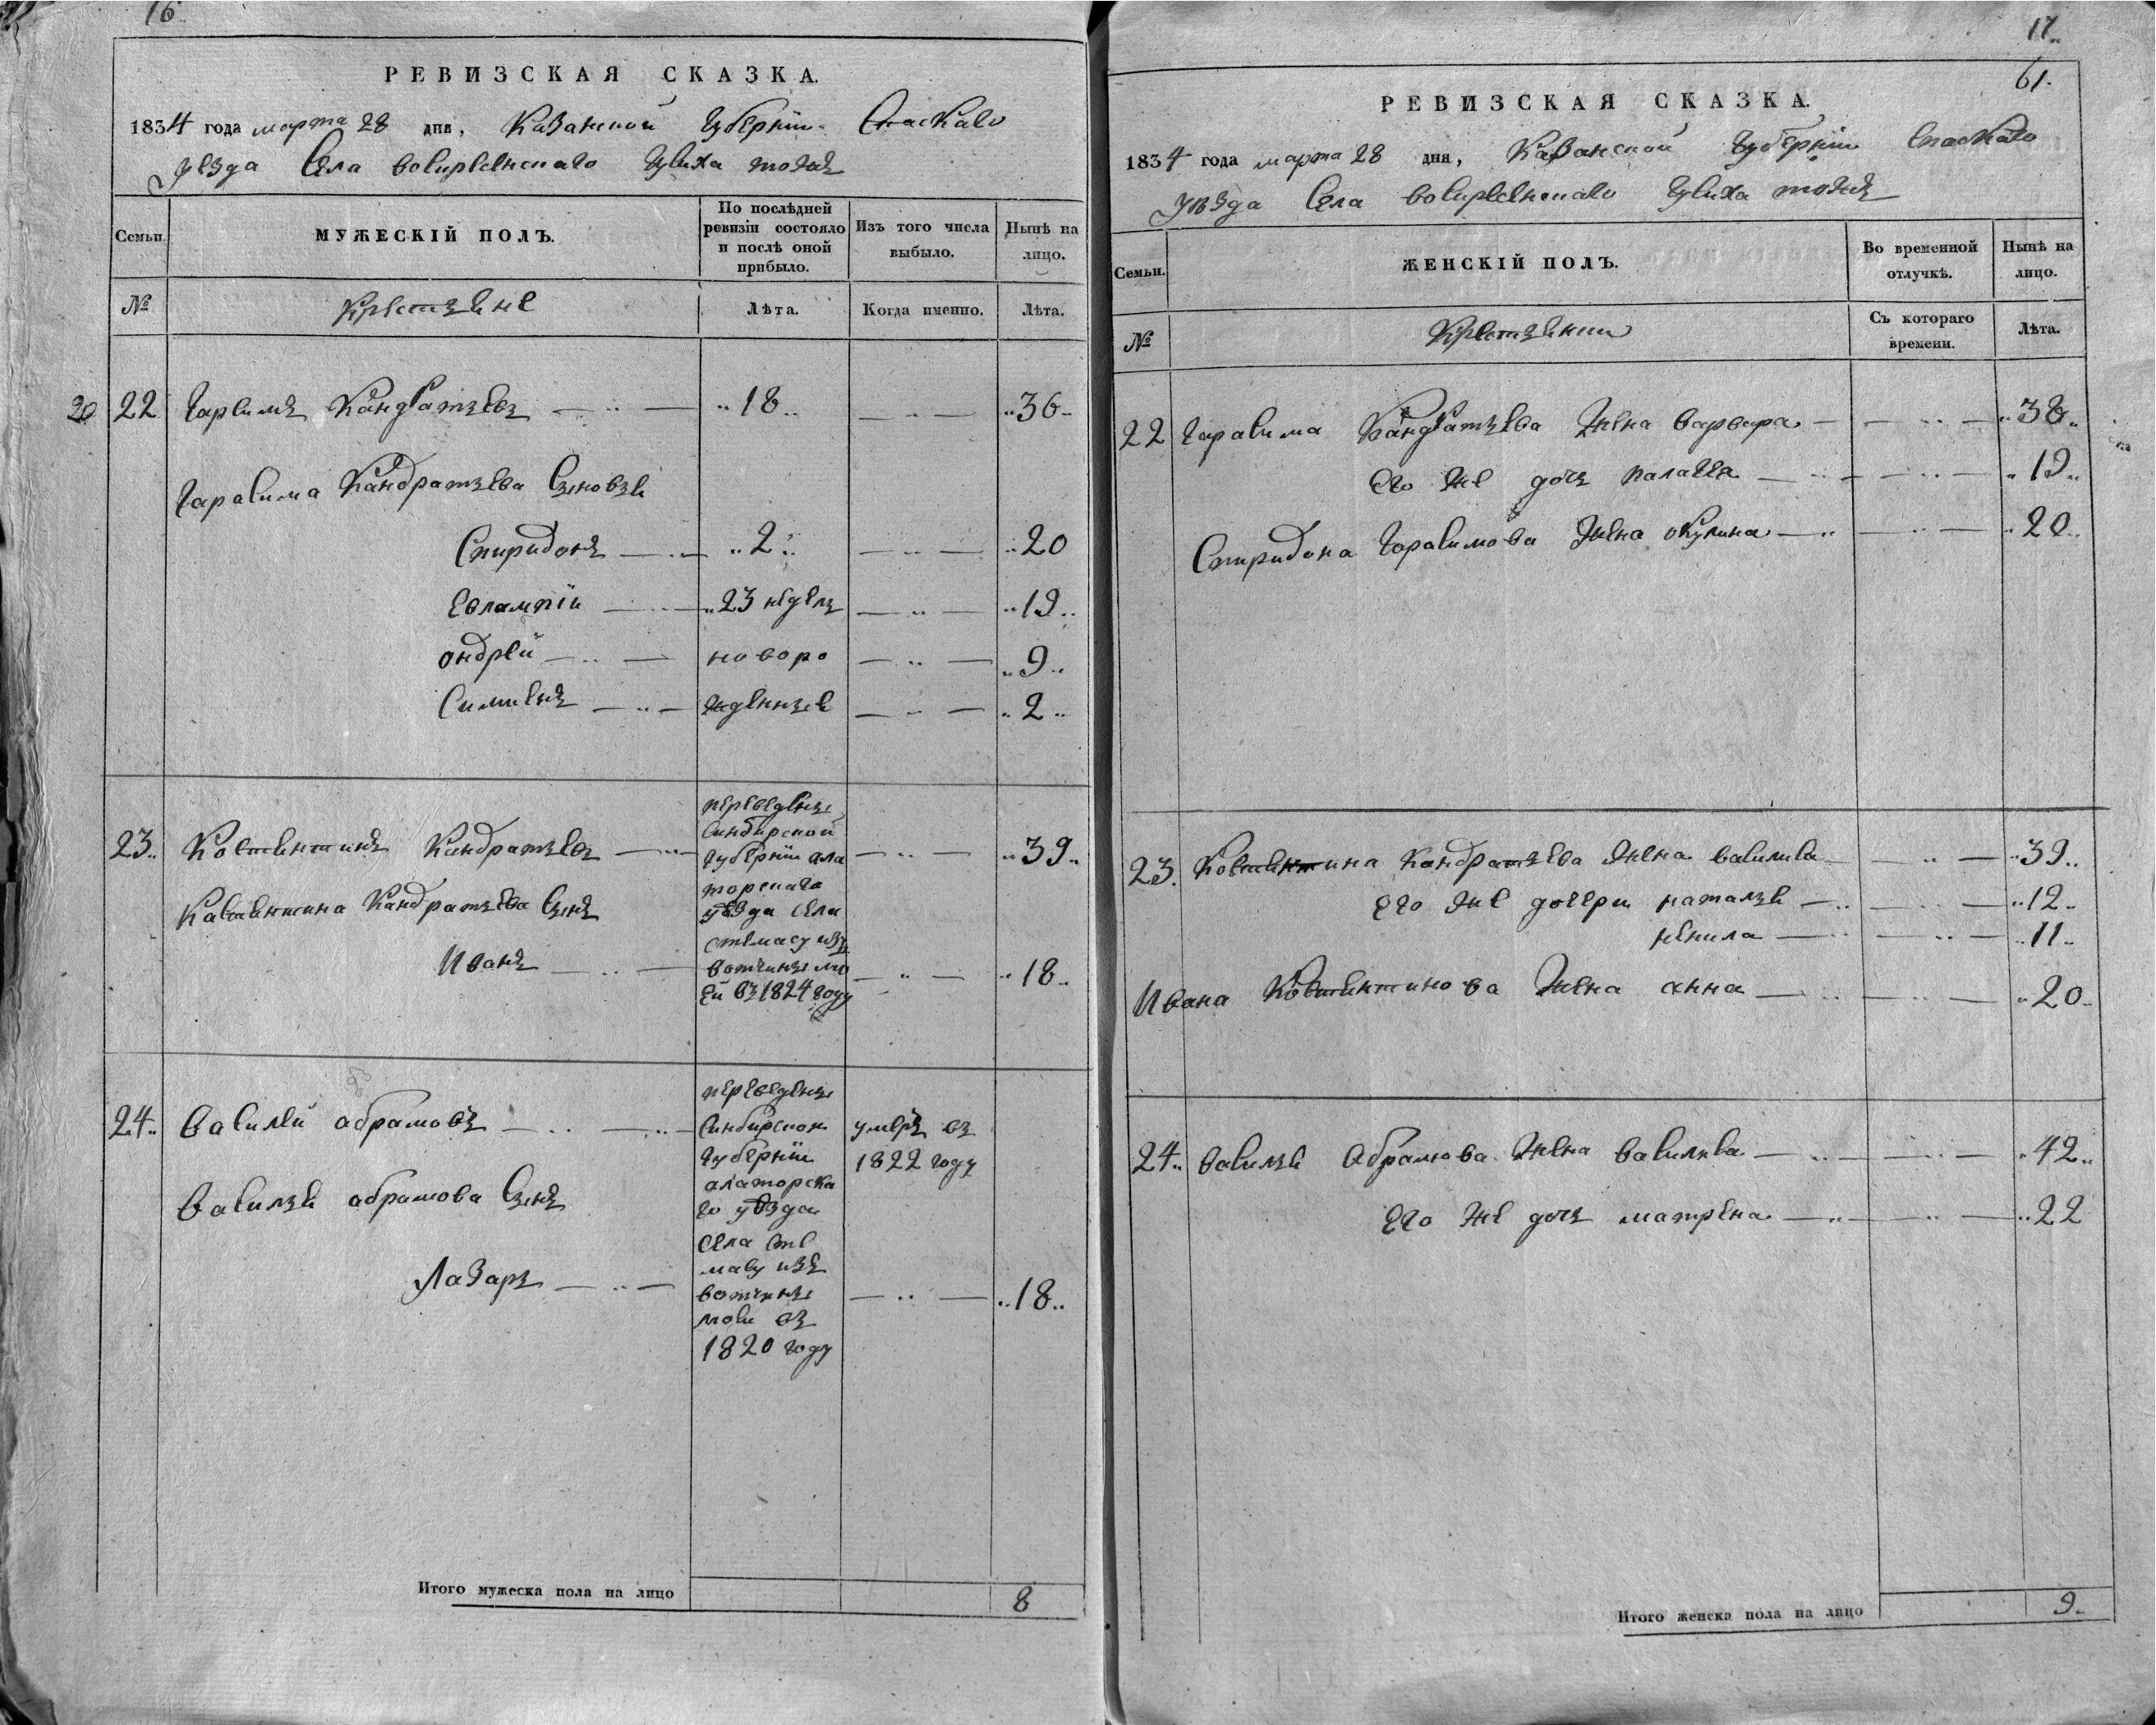 16
РЕВИЗСКАЯ СКАЗКА.
1834 года марта 28 дня, Казанской губернии Спаскаго
уезда Села воскресенскаго тожъ
Семьи.
МУЖЕСКІЙ ПОЛЪ.
По послѣдней ревизіи состояло и послѣ оной прибыло.
Изъ того числа выбыло.
Нынѣ на лицо.
№
Крестьяне
Лѣта.
Когда именно.
Лѣта.
20 22 Кандратьевъ 18 36
Кандратьева Сыновьи
Спиридонъ 2 20
Евлампій 23 недель 19
ондрей новоро 9
Симионъ жденные 2
23 Костентинъ Кандратьевъ 39
Кастентина Кандратьева Сынъ
Иванъ 18
переведены
Синбирской
губерніи ала
торскаго
уѣзда села
стемасу изъ
вотчины мо
ей въ 1824 году
24 Василей абрамовъ умеръ въ
1822 году
Василья абрамова Сынъ
Лазарь 18
переведены
Синбирской
губерніи
алаторска
го уѣзда
села Сте
масу изъ
вотчины
моей въ
1820 году
Итого мужеска пола на лицо 8
17
61.
РЕВИЗСКАЯ СКАЗКА.
1834 года марта 28 дня, Казанской губерніи Спаскаго
уѣзда Села воскресенскаго тожъ
Семьи.
ЖЕНСКІЙ ПОЛЪ.
Во временной отлучкѣ.
Нынѣ на лицо.
№
Крестьянки
Съ котораго времени.
Лѣта.
22 Кандратьева Жена варвара 38
Его же дочь палагея 19
Спиридона Жена окулина 20
23. Костентина Кандратьева Жена василиса 39
Его же дочери наталья 12
ненила 11
Ивана Костентинова Жена анна 20
24 Василья Абрамова Жена василиса 42
Его же дочь матрена 22
Итого женска пола на лицо 9